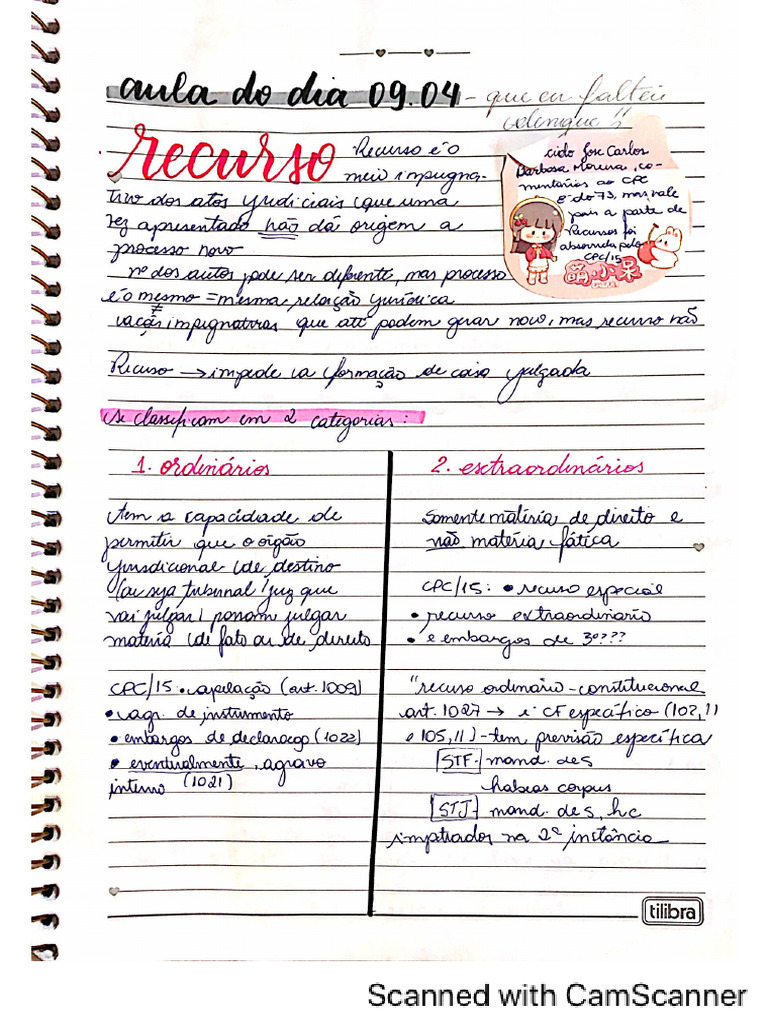 aula do dia 09.04 - que eu faltei
dengue !!
recurso
Recurso é o
meio impugna-
tivo dos atos judiciais que uma
vez apresentado não dá origem a
processo novo
nº dos autos pode ser diferente, mas processo
é o mesmo = mesma relação jurídica
≠
impugnativas que até podem gerar novo, mas recurso não
cido José Carlos
Barbosa Moreira, co-
mentários ao CPC
É do 73, mas vale
pois a parte de
Recursos foi
absorvida pelo
CPC/15
萌小果
Recurso → impede a formação de coisa julgada
se classificam em 2 categorias:
1. ordinários
tem a capacidade de
permitir que o órgão
jurisdicional de destino
(ou seja tribunal/juz que
vai julgar) possam julgar
matéria de fato ou de direito
CPC/15 • apelação (art. 1009)
• agr. de instrumento
• embargos de declaração (1022)
• eventualmente, agravo
interno (1021)
2. extraordinários
somente matéria de direito e
não matéria fática
CPC/15: • recuso especial
• recurso extraordinário
• e embargos de 3º???
"recuso ordinário - constitucional
art. 1027 → e CF específico (102, II
e 105, II) - tem previsão específica
STF - mand. de s
habias corpus
STJ - mand. de s, hc
impetrados na 2ª instância
tilibra
Scanned with CamScanner